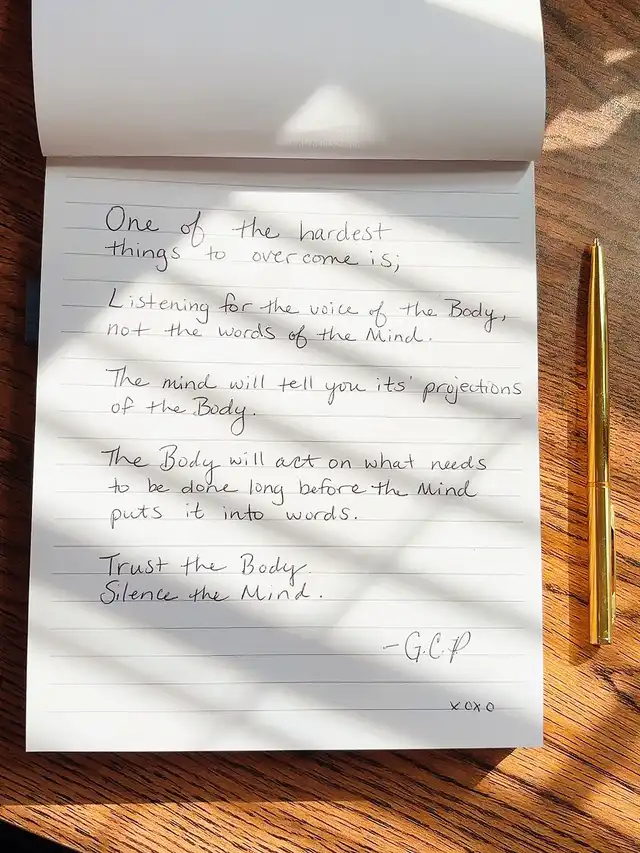 One of the hardest
things to overcome is;
Listening for the voice of the Body,
not the words of the Mind.
The mind will tell you its' projections
of the Body.
The Body will act on what needs
to be done long before the Mind
puts it into words.
Trust the Body.
Silence the Mind.
- G.C.P
xoxo